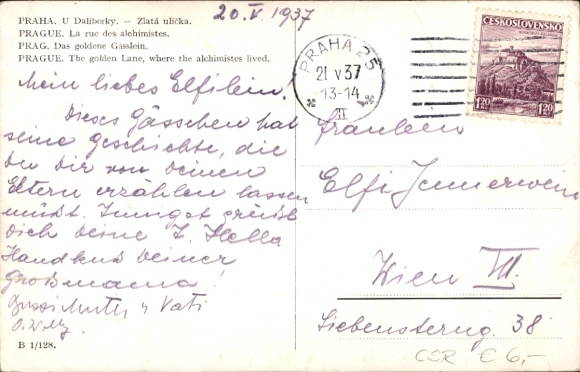 PRAHA. U Daliborky. – Zlatá ulička.
PRAGUE. La rue des alchimistes.
PRAG. Das goldene Gässlein.
PRAGUE. The golden Lane, where the alchimistes lived.
20. V. 1937
Mein liebes Elfilein!
Dieses Gässchen hat
seine Geschichte, die
Du Dir von Deinen
Eltern erzählen lassen
müßt. Innigst grüßt
Dich Deine T. Hella
Handkuß Deiner
Großmama!
Bussi Mutti u Vati
B 1/128.
PRAHA 25
21 V 37
13-14
II
ČESKOSLOVENSKO
1.20 1.20
Fräulein
Elfi Jennerwein
Wien VII.
Siebensterng. 38
ČSR € 6,-